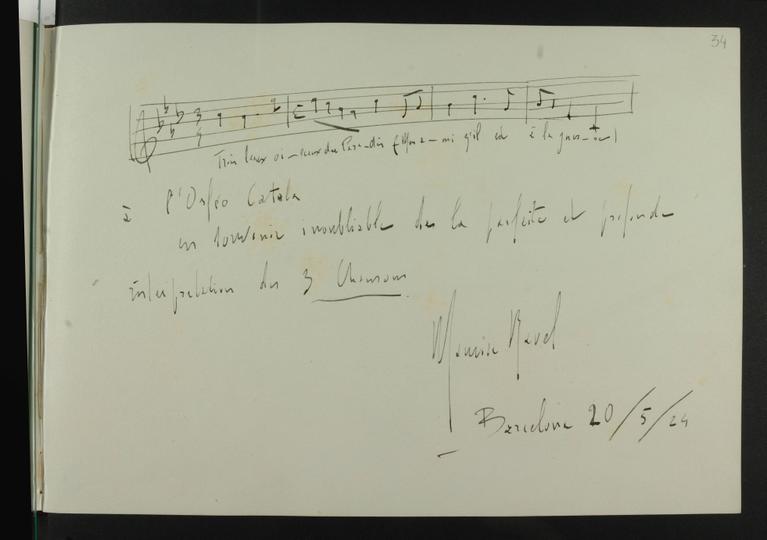 34
Trois beaux oi-seaux du Para-dis (Mon a-mi z'il est à la guer-re)
à l'Orfeo Catala
en souvenir inoubliable de la parfaite et profonde
interprétation des 3 Chansons
Maurice Ravel
Barcelone 20/5/24